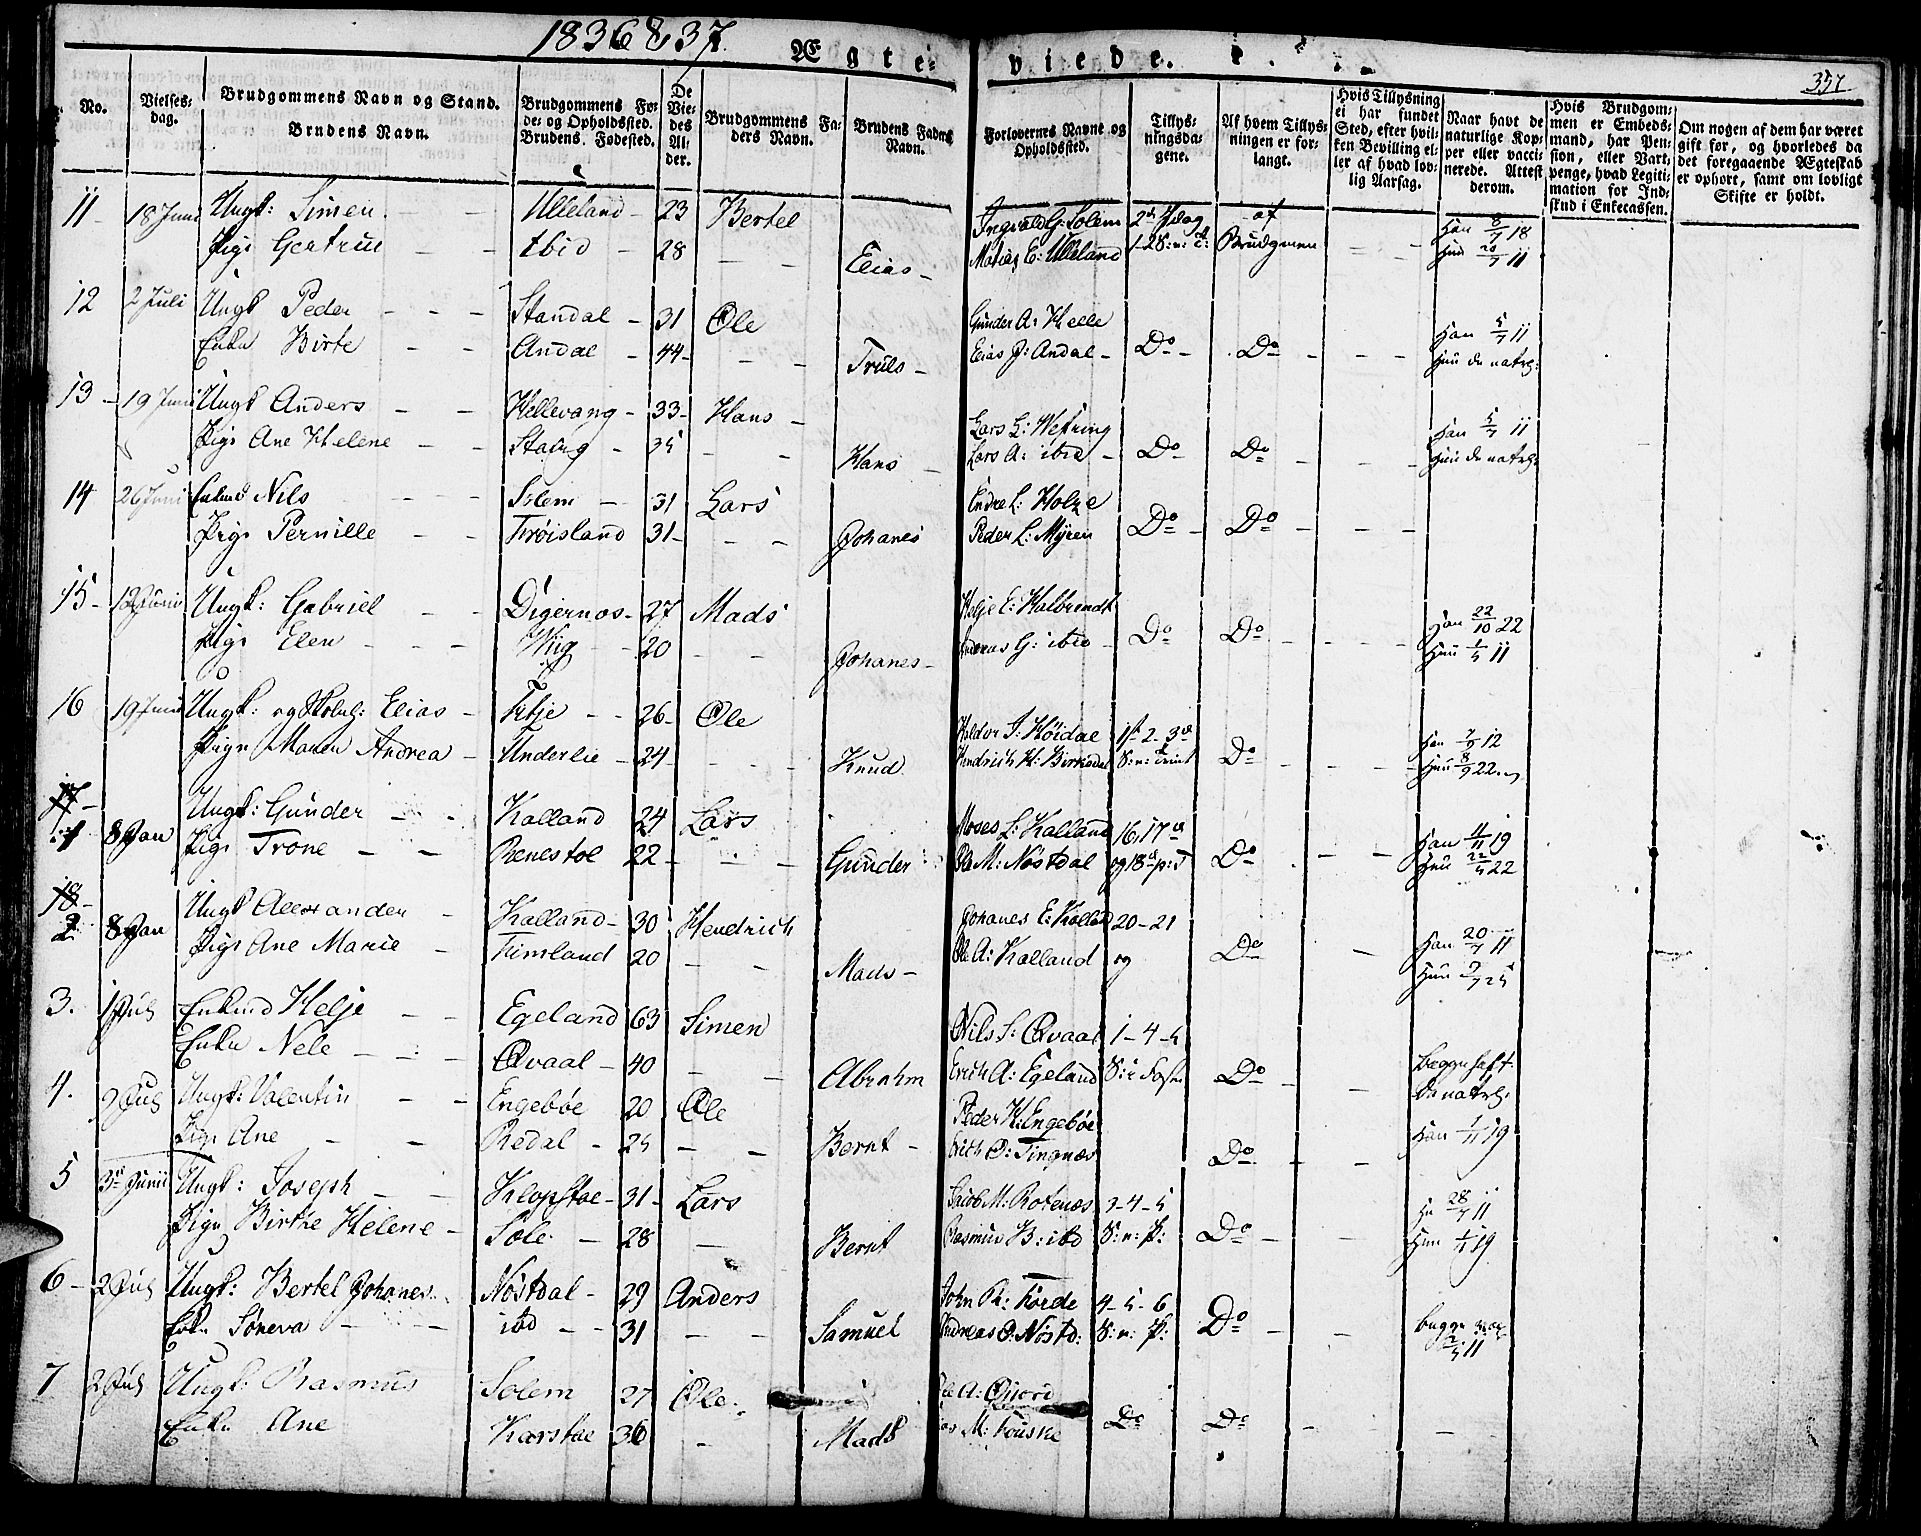 1836 & 37.
Ægteviede.
357
No.
Vielses-dag.
Brudgommens Navn og Stand.
Brudens Navn.
Brudgommens Føde- og Opholdssted.
Brudens Fødested.
De Viedes Alder.
Brudgommens Faders Navn.
Brudens Faders Navn.
Forlovernes Navne og Opholdssted.
Tillysningsdagene.
Af hvem Tillysningen er forlangt.
Hvis Tillysning ei har fundet Sted, efter hvilken Bevilling eller af hvad lovlig Aarsag.
Naar havt de naturlige Kopper eller vaccinerede. Attest derom.
Hvis Brudgommen er Embedsmand, har Pension, eller Vartpenge, hvad Legitimation for Indskud i Enkecassen.
Om nogen af dem har været gift før, og hvorledes da det foregaaende Ægteskab er ophørt, samt om lovligt Skifte er holdt.
11 - 18 Juni Ungk: Simen - Ulleland - 23 Bertel Ingvald G: Solem af Han 8/7 18
Pige Giertrue - ibid - 28 - - Elias - Matias E: Ulleland Brudgommen - - Hun 20/7 11
12 2 Juli Ungk Peder - - - Standal - 31 Ole Gunder A: Helle Han 5/7 11
Enke Birte - - Andal - 44 - - - Truls - Elias J: Andal - Do - Do - - - Hun de natrl:
13 - 19 Juni Ungk Anders - - Hellevang - 33 - Hans - Lars L: Wefring Han 5/7 11
Pige Ane Helene - - Stavig - 35 - - Hans - Lars A: ibid - Do - Do - - - Hun de natrl:
14 26 Juni Enkmd Nils - - - Solem - 31 Lars Endre L: Holze
Pige Pernille - - Frøisland 31 - - - Johanes Peder L: Myren Do - Do - - -
15 - 12 Juni Ungk: Gabriel - - Digernæs - 27 Mads Helje E: Halbrendt Han 22/10 22
Pige Elen - - - Wiig - 20 - - Johanes - Andreas G: ibid - Do Do - - - Hun 1/5 11
16 19 Juni Ungk: og Skolel: Elias - Tetje - - 26 - Ole Haldor J: Høidal 1st 2 - 3d Han 7/9 12
Pige Maren Andrea - Underlie - 24 - - - Knud Hendrich H: Birkedal S: n: Trint Do - - - Hun 8/9 22
17 -
1 8 Jan Ungk: Gunder - - Kalland 24 Lars Moses L: Kalland 16, 17de Han 11/11 19
Pige Trone - - Renestøl 22 - - - Gunder Ole M: Nøstdal og 18de p: T Do - - Hun 22/5 22
18 -
2 8 Jan Ungk Alexander - Kalland - 30 Hendrich Johanes E: Kalland 20 - 21 Han 20/7 11
Pige Ane Marie - Fimland 20 - - Mads - Ole A: Kalland og Do - Hun 9/7 25
3. 1 Jul Enkmd Helje - - Egeland 63 Simen Nils S: Qvaal 1 - 4 - 5
Enke Nele - - - Qvaal - 40 - - Abrahm Erich A: Egeland S: i Faste Do - - begge haft
4. 9 Jul Ungk: Valentin - - Engebøe 20 Ole Peder H: Engebøe de natrl:
Pige Ane - - Redal - 25 - - Bernt - Erich O: Tingnæs Do - - Han 1/11 19
5 3de Junii Ungk: Joseph - - Klopstøe - 31 - Lars Jacob M: Rotenæs 3 - 4 - 5 Han 28/7 11
Pige Birthe Helene - Sole - 28 - Bernt Rasmus B: ibd S: n: P: Do - - Hun 1/11 19
6 - 2 Jul Ungk: Bertel Johanes - Nøstdal - 29 Anders John R: Førde 4 - 5 - 6
Enke Søneva - - ibd - - 31 - - Samuel Andreas O: Nøstd: S: n: P: Do - - begge
2/5 11
7 2 Jul Ungk: Rasmus Solem 27 Ole Ole A:
Enke Ane Karstøe 36 - Mads M: Do Do - -